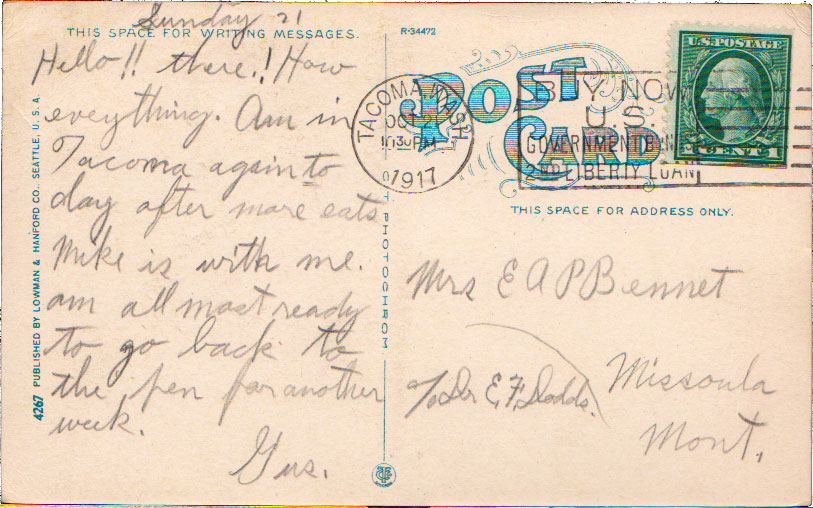 Sunday 21
THIS SPACE FOR WRITING MESSAGES.
Hello!! there!! How
eveything. Am in
Tacoma again to
day after more eats
Mike is with me.
am all most ready
to go back to
the pen for another
week.
Gus.
4267 PUBLISHED BY LOWMAN & HANFORD CO., SEATTLE, U. S. A.
R-34472
POST CARD
TACOMA, WASH
OCT 21
1030PM
1917
BUY NOW
U.S.
GOVERNMENT BONDS
2ND LIBERTY LOAN
U.S. POSTAGE
1 CENT 1
THIS SPACE FOR ADDRESS ONLY.
Mrs E A P Bennet
c/o Dr E. F. Dodds.
Missoula
Mont.